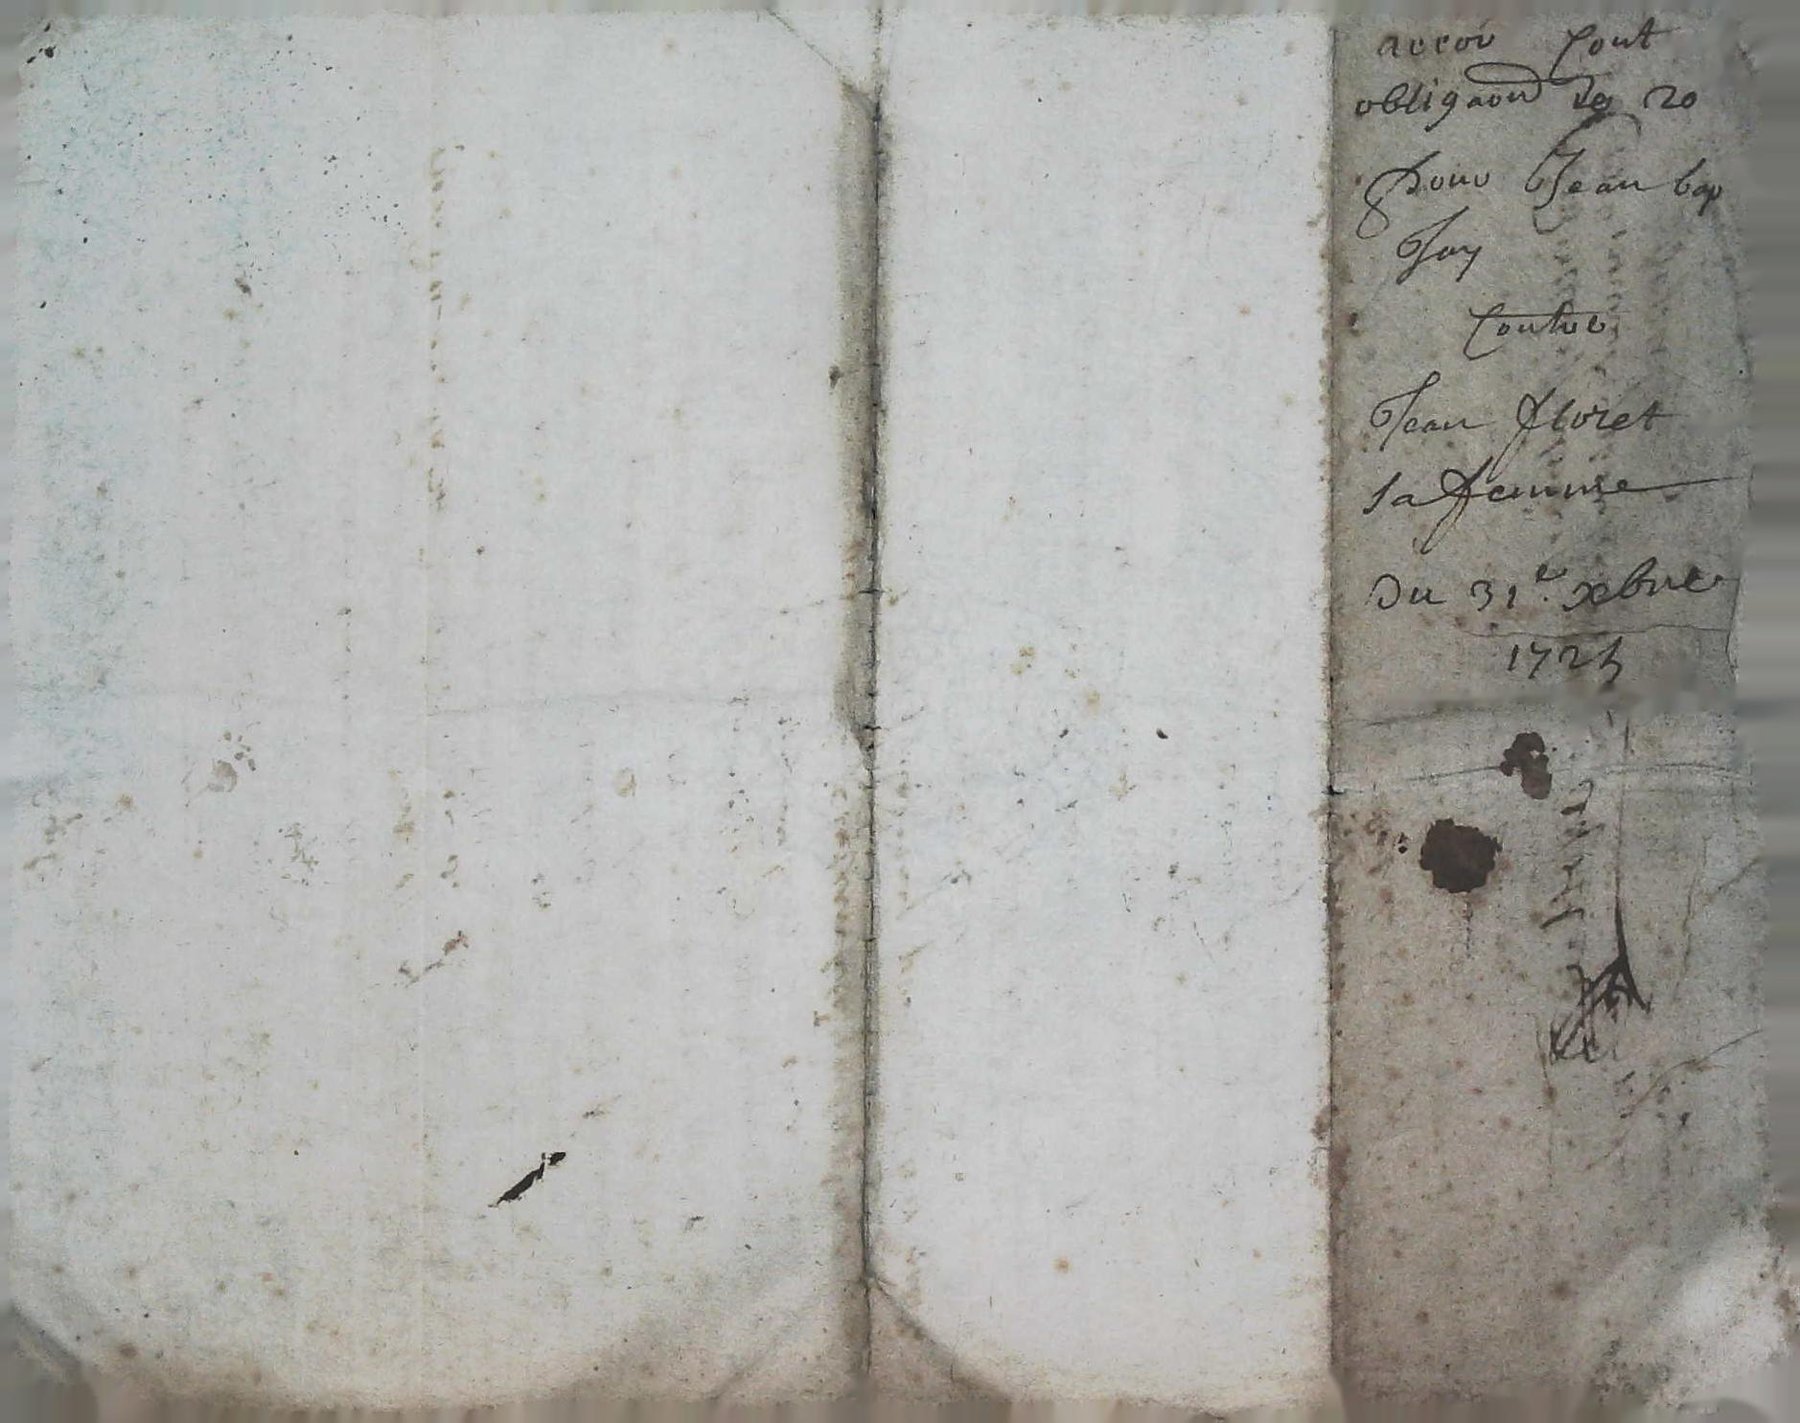 accor Cont
obligaon de 20
pour Jean bap
Joy
Contre
Jean floret
sa femme
Du 31e xbre
1725